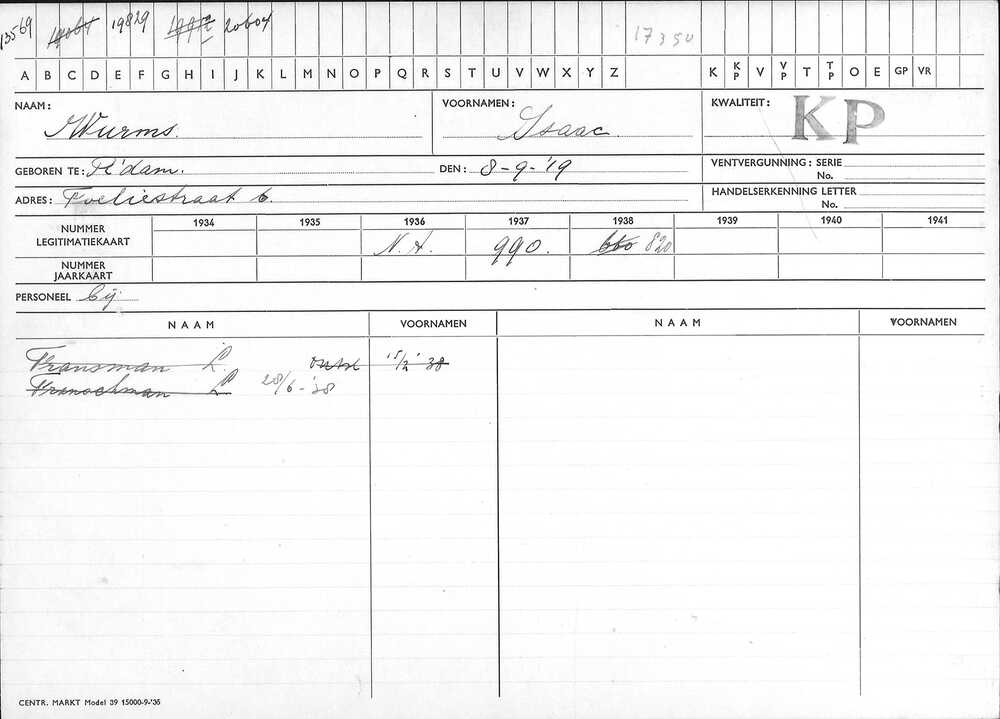 13569 19829 20604 17350
A B C D E F G H I J K L M N O P Q R S T U V W X Y Z K KP V VP T TP O E GP VR
NAAM: Wurms. VOORNAMEN: Isaac. KWALITEIT: KP
GEBOREN TE: A'dam. DEN: 8-9-'19 VENTVERGUNNING: SERIE
No.
ADRES: Foeliestraat 6. HANDELSERKENNING LETTER
No.
1934 1935 1936 1937 1938 1939 1940 1941
NUMMER LEGITIMATIEKAART N.A. 990. 660 820
NUMMER JAARKAART
PERSONEEL bij
NAAM VOORNAMEN NAAM VOORNAMEN
Fransman L. 15/2 '38
L 28/6-'38
CENTR. MARKT Model 39 15000-9-'35